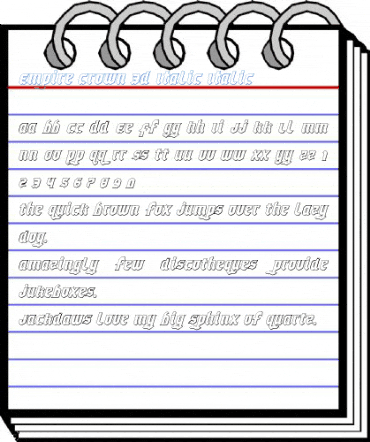 Empire Crown 3D Italic Italic
aa bb cc dd Ee ff gg hh ii Jj kk LL mm
nn oo pp qq rr ss tt uu vv ww xx yy zz 1
2 3 4 5 6 7 8 9 0
the quick brown fox jumps over the lazy
dog.
amazingly few discotheques provide
jukeboxes.
Jackdaws love my big sphinx of quartz.